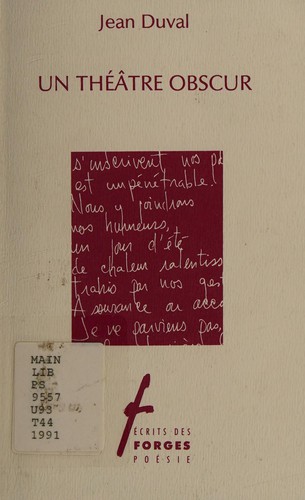 Jean Duval
UN THÉÂTRE OBSCUR
s'inscrivent nos
est impénétrable!
Nous y joindrons
nos humeurs,
un jour d'été
de chaleur ralentiss
trahis par nos ges
Assurance ou acco
Je ne parviens pas,
MAIN
LIB
PS
9557
U93
T44
1991
ÉCRITS DES
FORGES
POÉSIE